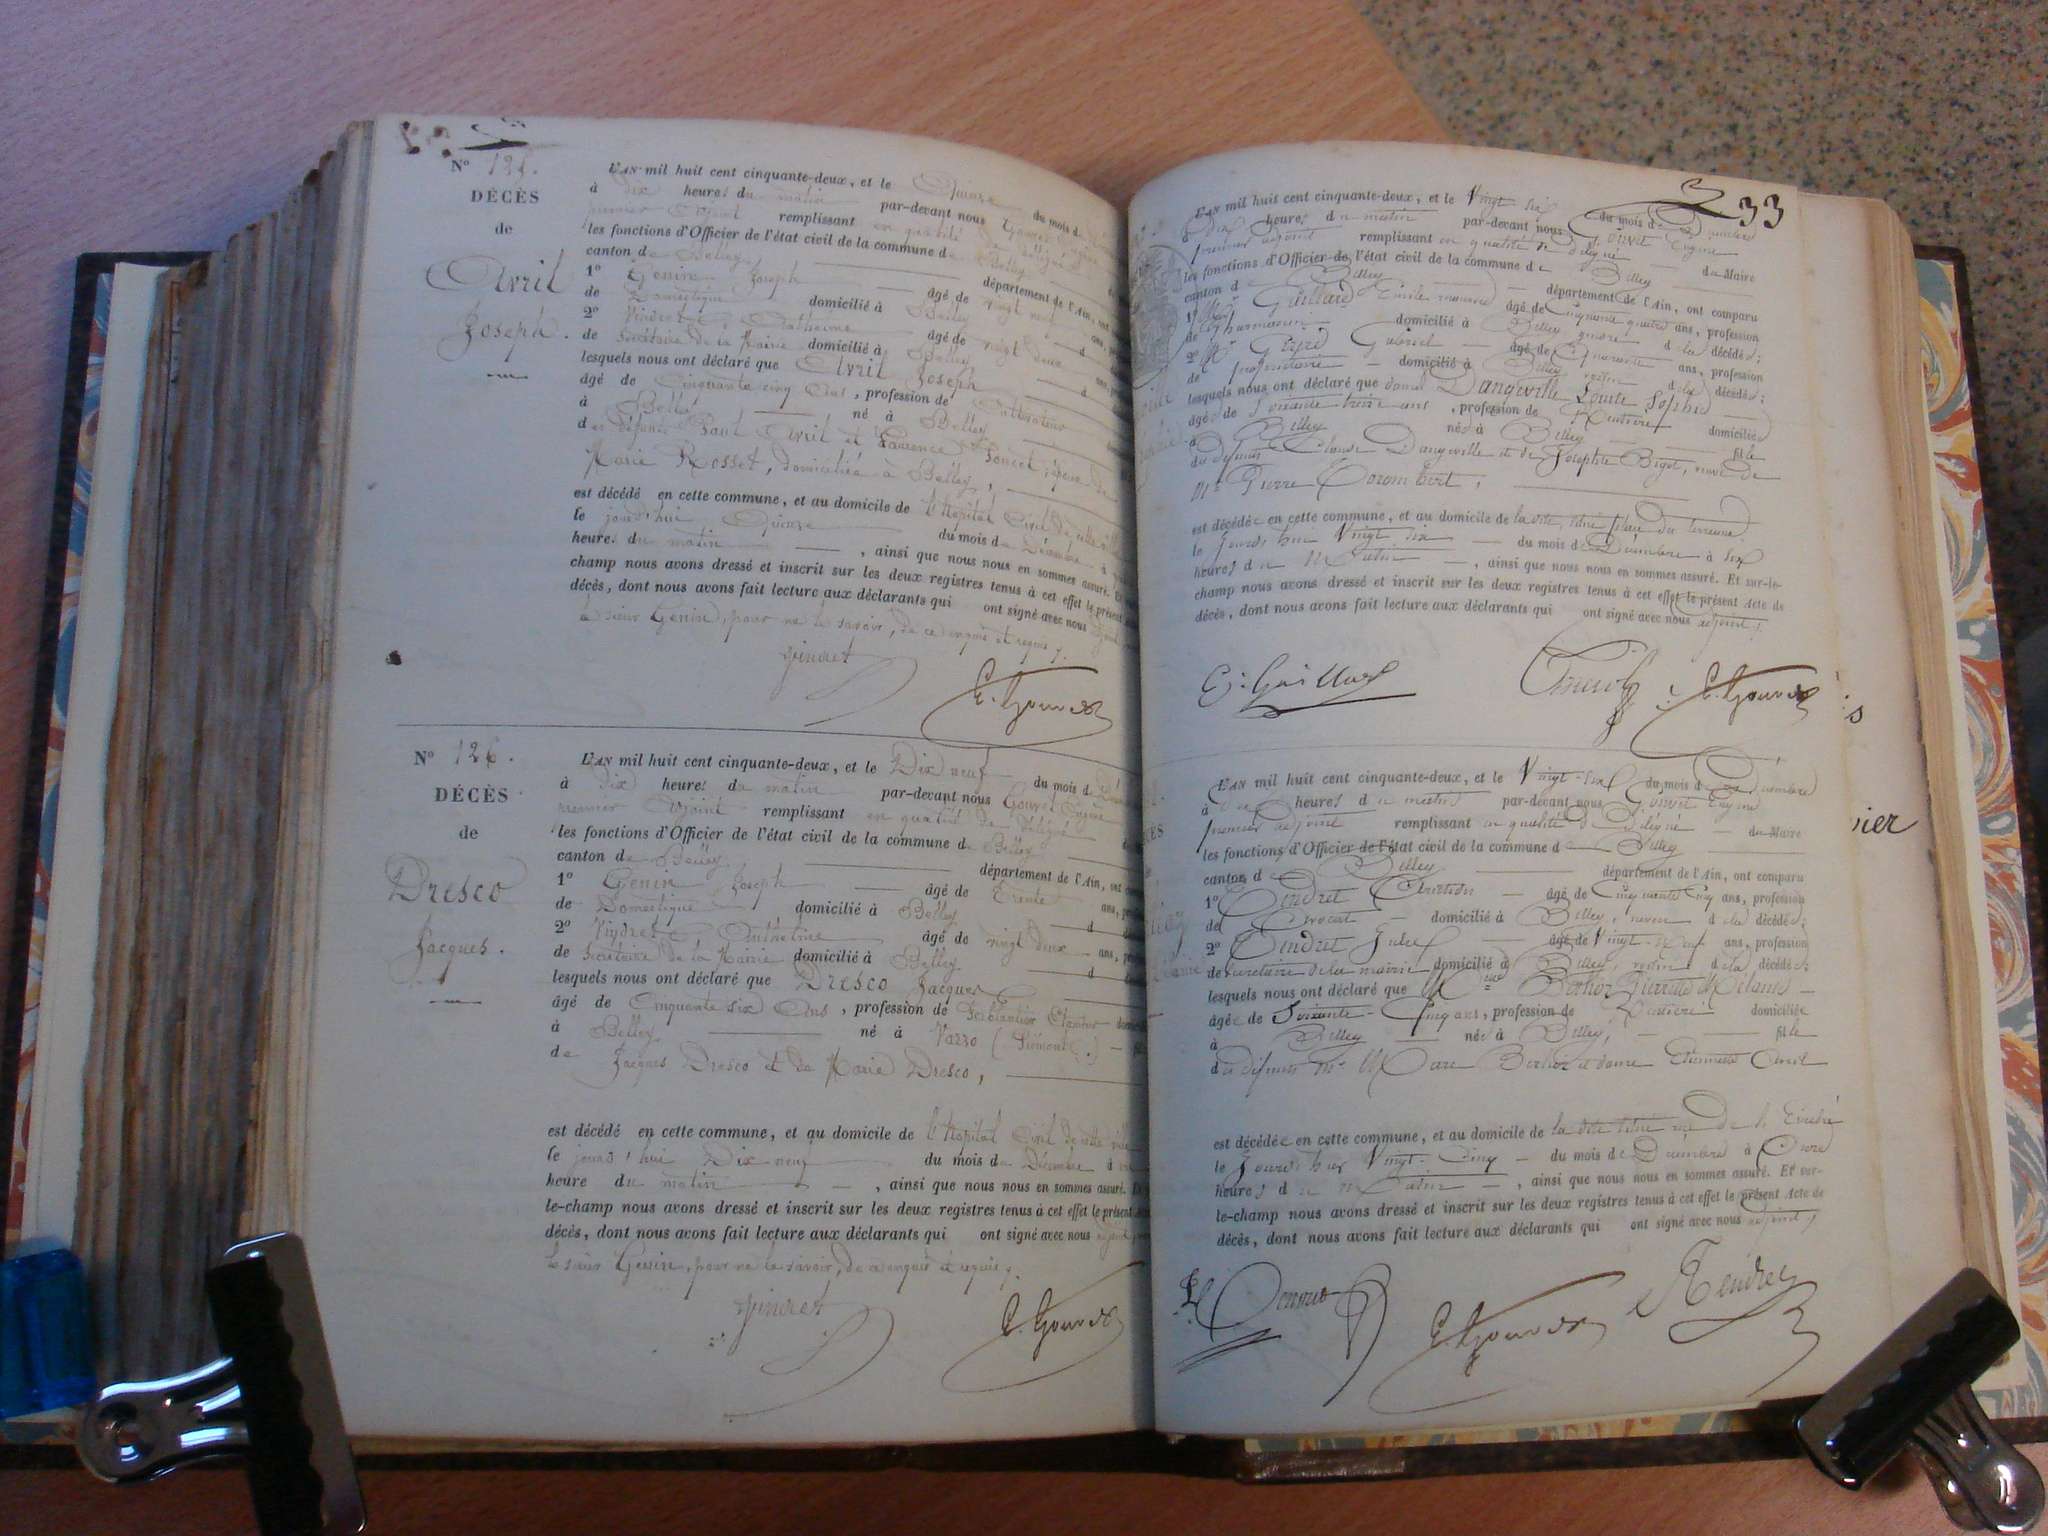 N° 125.
DÉCÈS
de
Avril
Joseph.
L'AN mil huit cent cinquante-deux, et le Quinze du mois d
à Dix heures du matin par-devant nous Gouvet
premier adjoint remplissant en qualité de délégué
les fonctions d'Officier de l'état civil de la commune de Belley
canton de Belley département de l'Ain, ont
1° Genin Joseph âgé de vingt neuf
de Domestique domicilié à Belley
2° Vindret Anthelme âgé de vingt deux ans,
de Secrétaire de la Mairie domicilié à Belley
lesquels nous ont déclaré que Avril Joseph
âgé de Cinquante cinq Ans, profession de Cultivateur
à Belley né à Belley
des défunts Paul Avril et Laurence Poncet, époux de
Marie Rosset, domiciliée à Belley,
est décédé en cette commune, et au domicile de l'Hôpital Civil de cette ville
le jourd'hui Quinze du mois de Décembre à
heures du matin, ainsi que nous nous en sommes assuré. Et
champ nous avons dressé et inscrit sur les deux registres tenus à cet effet le présent
décès, dont nous avons fait lecture aux déclarants qui ont signé avec nous
le sieur Genin, pour ne le savoir, de ce enquis et requis.
Vindret E. Gouvet
N° 126.
DÉCÈS
de
Dresco
Jacques.
L'AN mil huit cent cinquante-deux, et le Dix neuf du mois d
à Dix heures du matin par-devant nous Gouvet Eugène
premier Adjoint remplissant en qualité de Délégué
les fonctions d'Officier de l'état civil de la commune de Belley
canton de Belley département de l'Ain, ont
1° Genin Joseph âgé de Trente ans,
de Domestique domicilié à Belley
2° Vindret Anthelme âgé de vingt deux ans,
de Secrétaire de la Mairie domicilié à Belley
lesquels nous ont déclaré que Dresco Jacques
âgé de Cinquante six Ans, profession de Ferblantier Etameur
à Belley né à Varzo (Piémont)
de Jacques Dresco et de Marie Dresco,
est décédé en cette commune, et au domicile de l'Hôpital Civil de cette ville
le jourd'hui Dix neuf du mois de Décembre à
heure du matin, ainsi que nous nous en sommes assuré. Et
le-champ nous avons dressé et inscrit sur les deux registres tenus à cet effet le présent
décès, dont nous avons fait lecture aux déclarants qui ont signé avec nous
le sieur Genin, pour ne le savoir, de ce enquis et requis.
Vindret E. Gouvet
33
L'AN mil huit cent cinquante-deux, et le Vingt six du mois de Décembre
à dix heures du matin par-devant nous Gouvet Eugène
premier adjoint remplissant en qualité de délégué du Maire
les fonctions d'Officier de l'état civil de la commune de Belley
canton de Belley département de l'Ain, ont comparu
1° Gaillard Emile âgé de Cinquante quatre ans, profession
de Pharmacien domicilié à Belley, d la décédée;
2° Gabriel âgé de Quarante ans, profession
de propriétaire domicilié à Belley voisin d la décédée;
lesquels nous ont déclaré que dame Dangeville Louise Sophie
âgée de Soixante treize ans, profession de Rentière domiciliée
à Belley née à Belley fille
du défunt Claude Dangeville et de Josephte Bigot, veuve de
Mr Pierre Corombert,
est décédée en cette commune, et au domicile de la dite, situé place du terreau,
le jourd'hui Vingt six du mois de Décembre à six
heures du Matin, ainsi que nous nous en sommes assuré. Et sur-le-
champ nous avons dressé et inscrit sur les deux registres tenus à cet effet le présent Acte de
décès, dont nous avons fait lecture aux déclarants qui ont signé avec nous adjoint.
E. Gaillard E. Gouvet
L'AN mil huit cent cinquante-deux, et le Vingt-six du mois de Décembre
à heures du matin par-devant nous Gouvet Eugène
premier adjoint remplissant en qualité de Délégué du Maire
les fonctions d'Officier de l'état civil de la commune de Belley
canton de Belley département de l'Ain, ont comparu
1° âgé de Cinquante Cinq ans, profession
de Avocat domicilié à Belley, neveu d la décédée;
2° âgé de Vingt-neuf ans, profession
de secrétaire de la mairie domicilié à Belley, voisin d la décédée;
lesquels nous ont déclaré que Berhoz Pierrette Mélanie
âgée de Soixante Cinq ans, profession de Rentière domiciliée
à Belley née à Belley, fille
des défunts Mr Marc Berhoz et dame Etiennette Avril
est décédée en cette commune, et au domicile de la dite situé rue de
le jourd'hui Vingt-Cinq du mois de Décembre à Onze
heures du Matin, ainsi que nous nous en sommes assuré. Et sur-
le-champ nous avons dressé et inscrit sur les deux registres tenus à cet effet le présent Acte de
décès, dont nous avons fait lecture aux déclarants qui ont signé avec nous adjoint
E. Gouvet